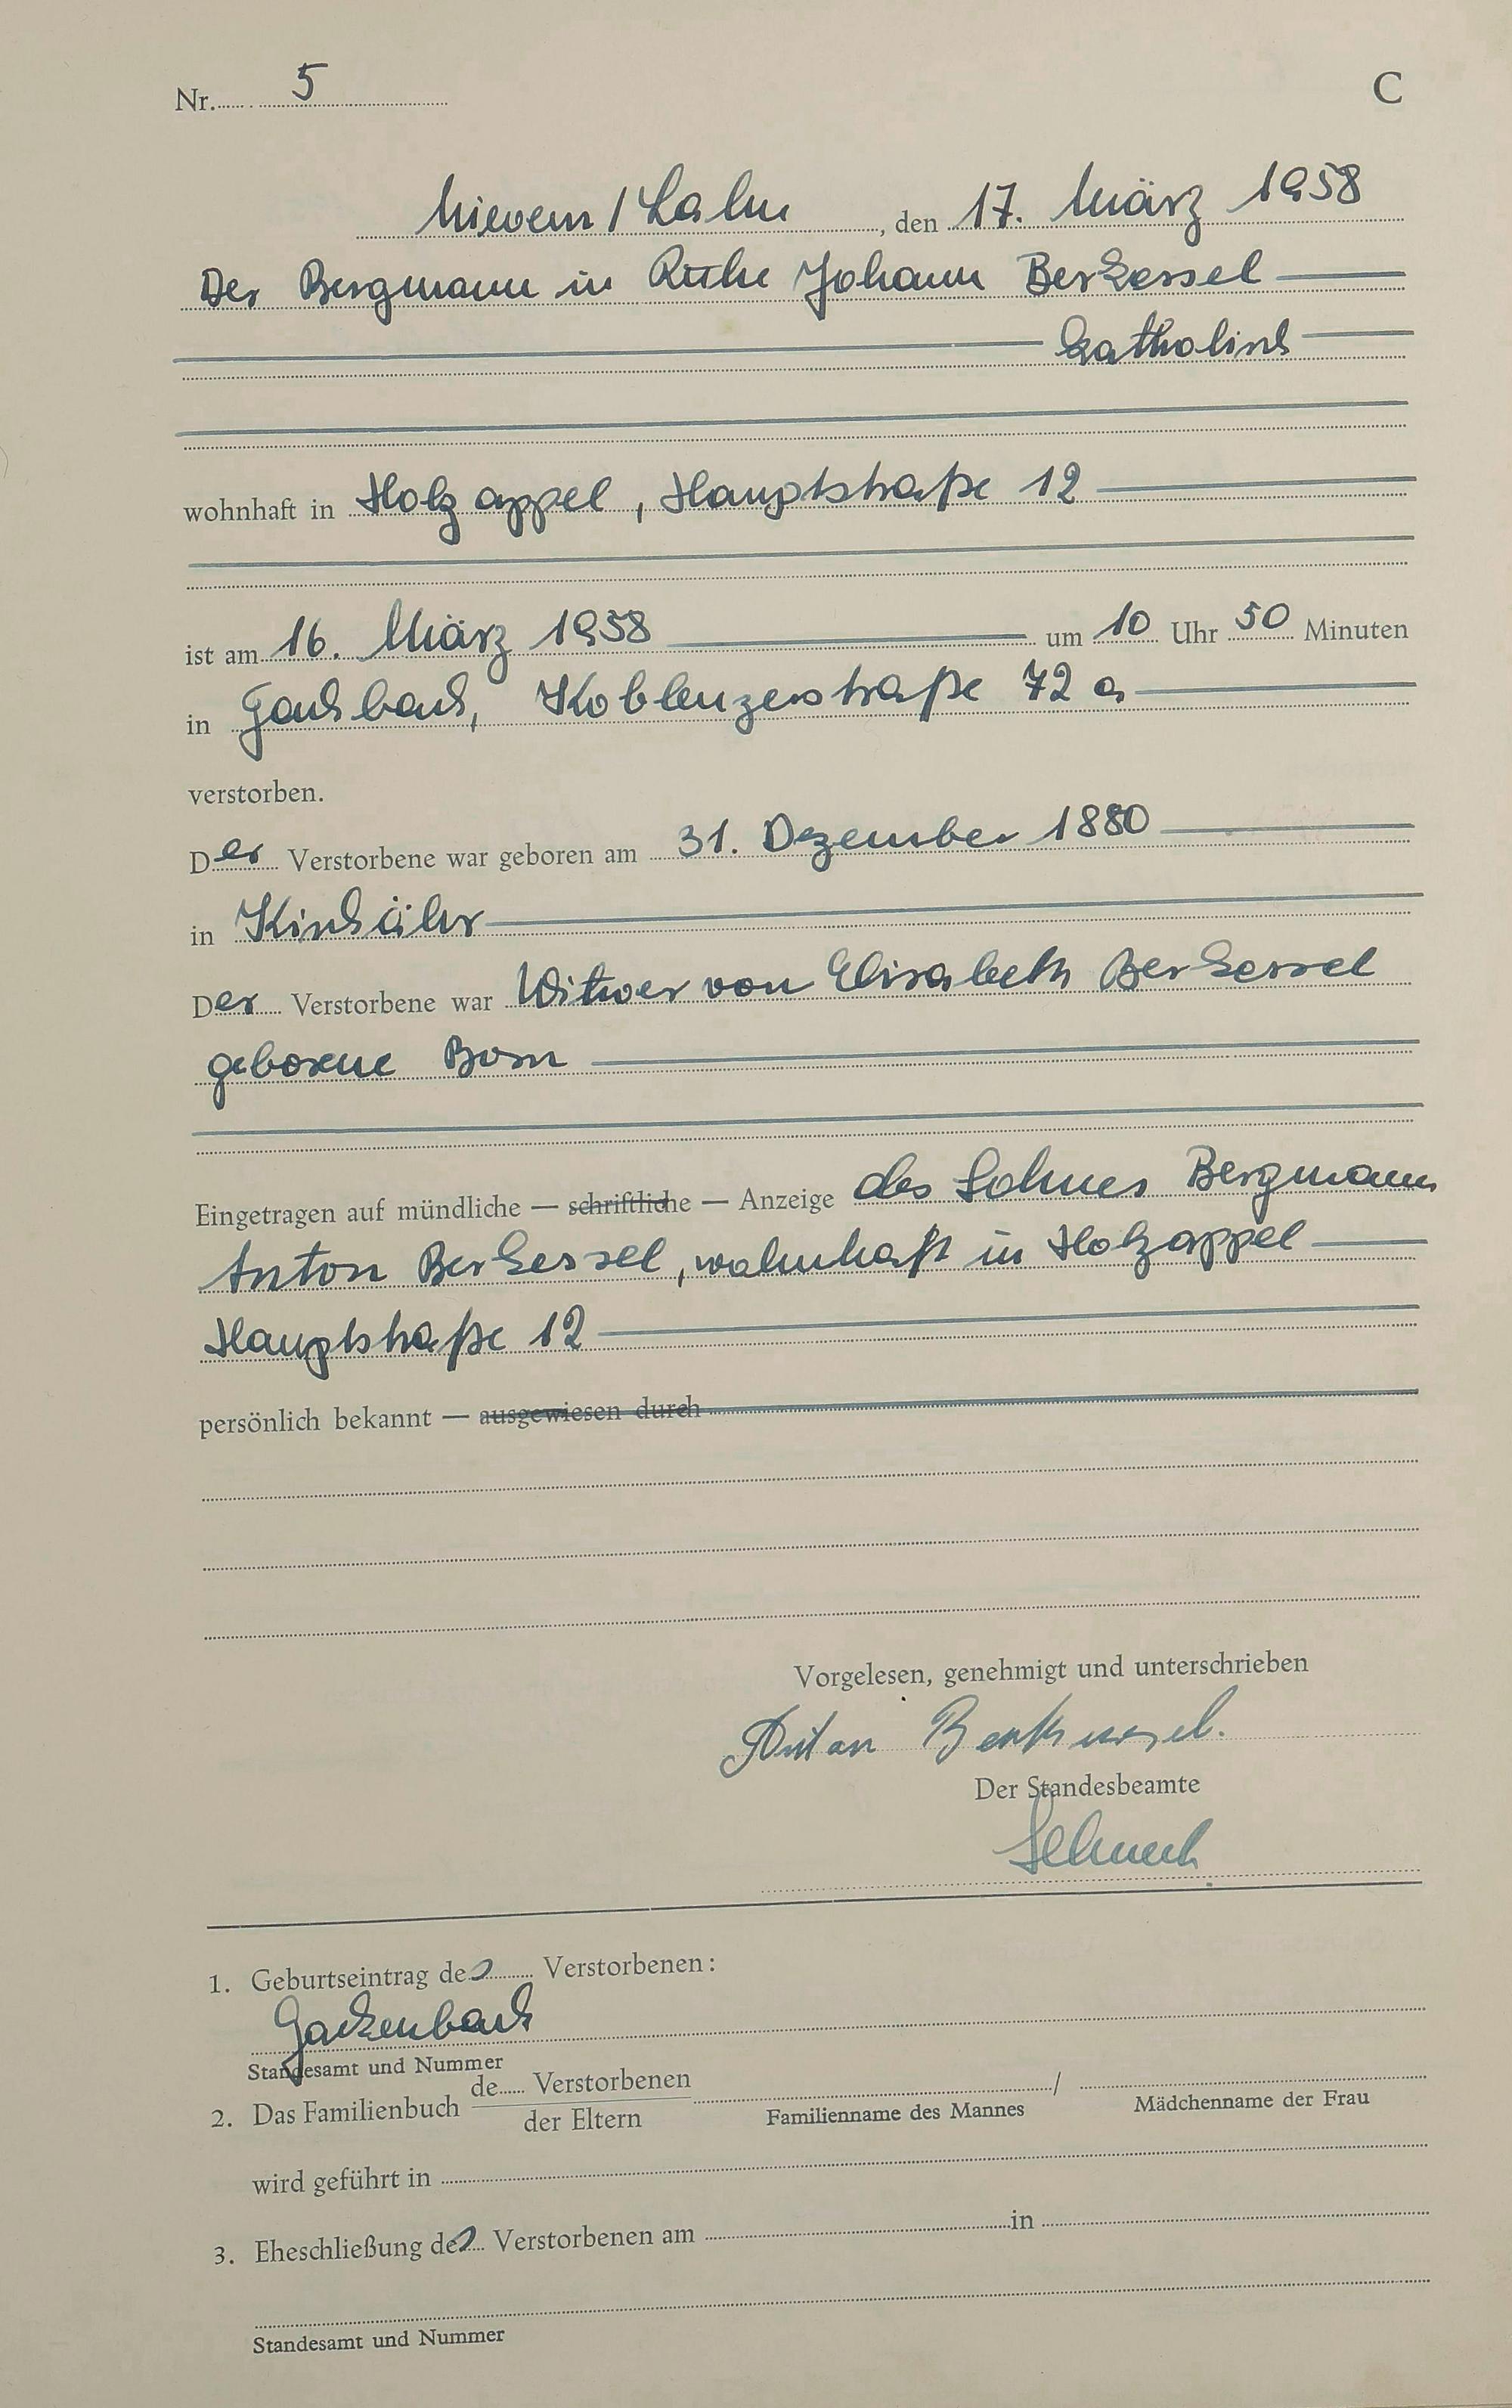 Nr. 5
C
Mievern / Lahn, den 17. März 1958
Der Bergmann in Ruhe Johann Berkessel
katholisch
wohnhaft in Holzappel, Hauptstraße 12
ist am 16. März 1958 um 10 Uhr 50 Minuten
in Fachbach, Koblenzerstraße 72 a
verstorben.
Der Verstorbene war geboren am 31. Dezember 1880
in Kirchähr
Der Verstorbene war Witwer von Elisabeth Berkessel
geborene Born
Eingetragen auf mündliche — schriftliche — Anzeige des Sohnes Bergmann
Anton Berkessel, wohnhaft in Holzappel
Hauptstraße 12
persönlich bekannt — ausgewiesen durch
Vorgelesen, genehmigt und unterschrieben
Anton Berkessel.
Der Standesbeamte
1. Geburtseintrag des Verstorbenen:
Gackenbach
Standesamt und Nummer
2. Das Familienbuch de Verstorbenen / der Eltern
Familienname des Mannes Mädchenname der Frau
wird geführt in
3. Eheschließung des Verstorbenen am in
Standesamt und Nummer